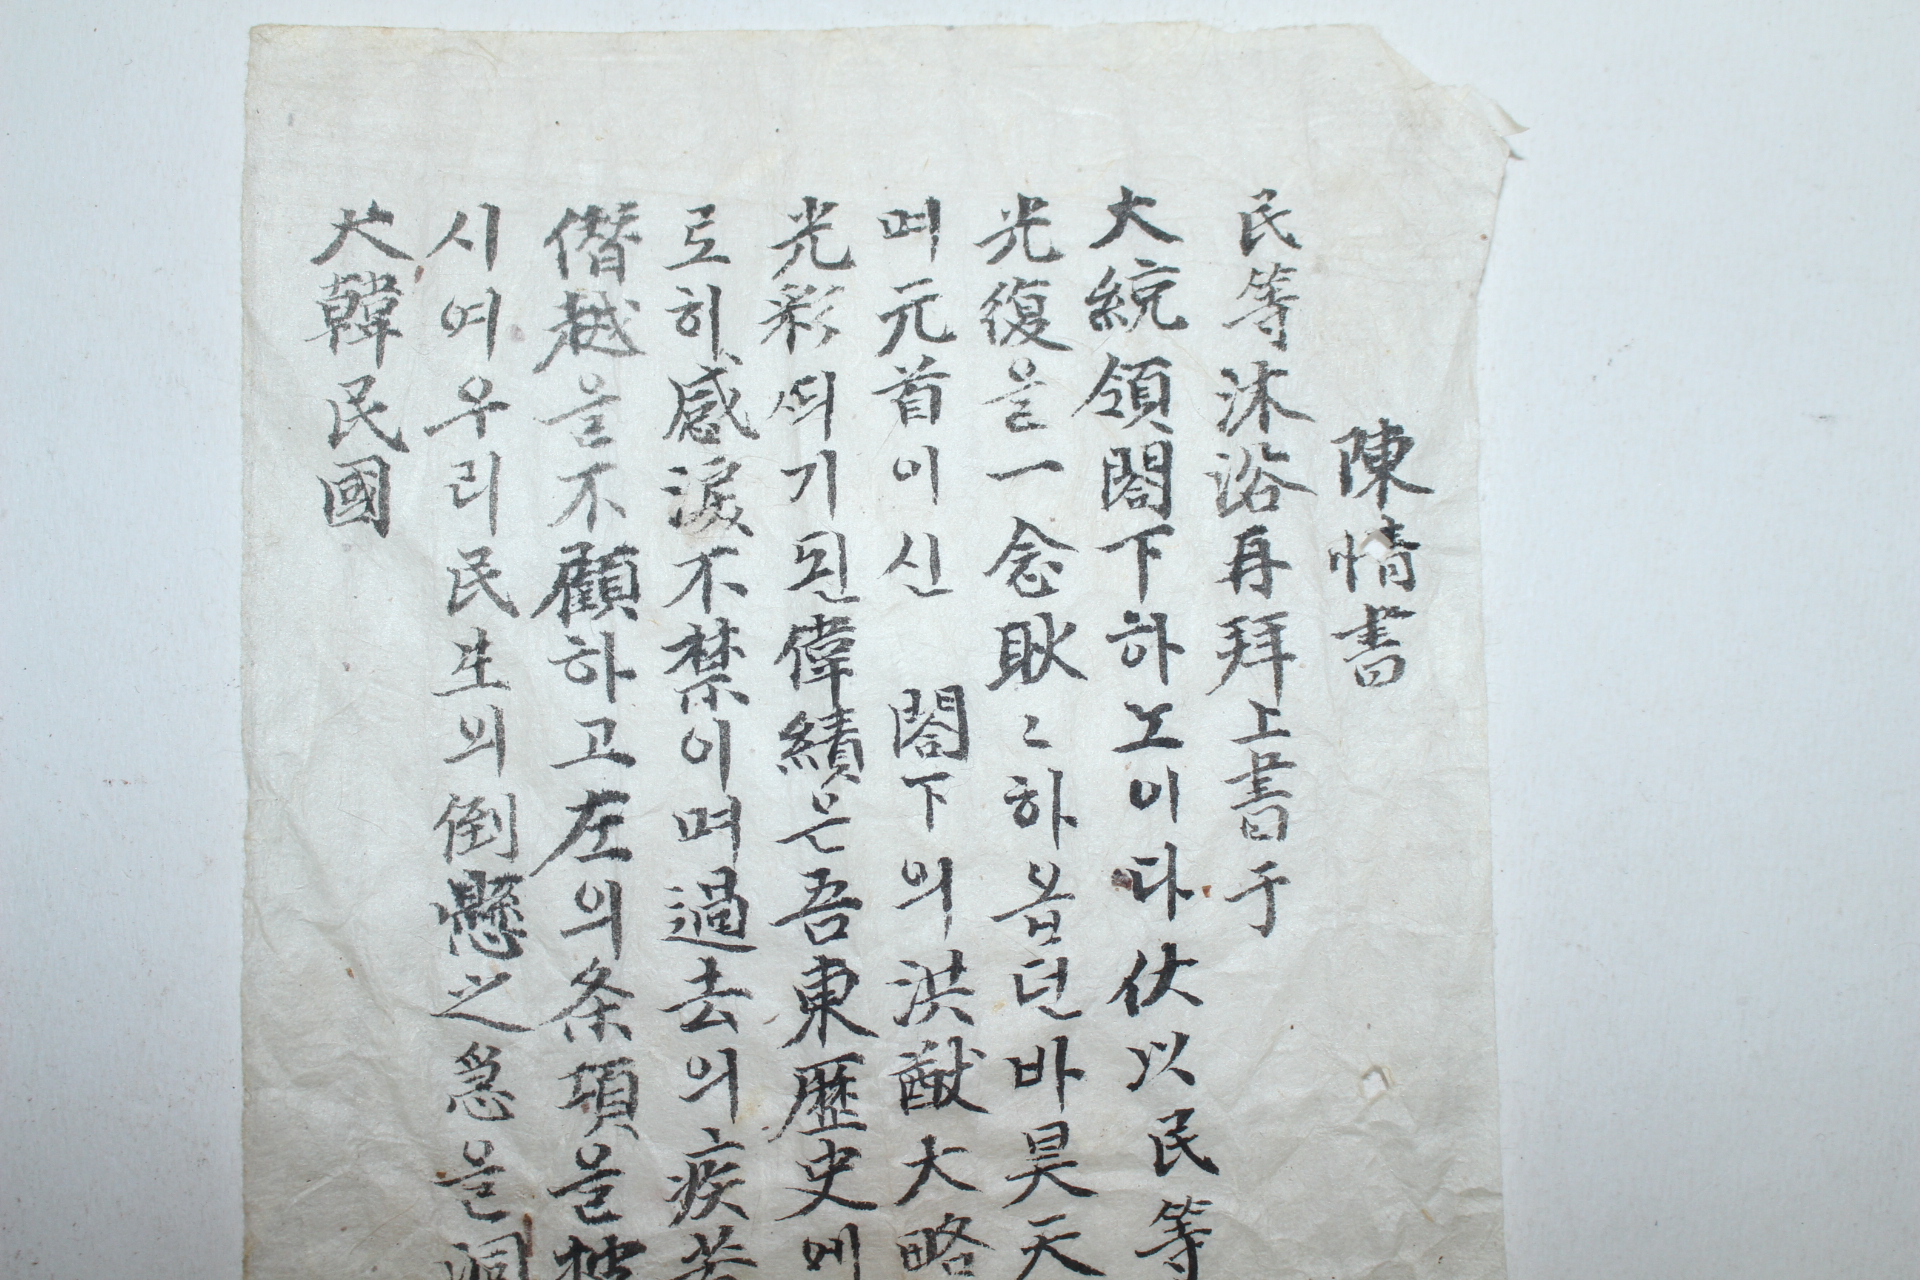 陳情書
民等沐浴再拜上書于
大統領閤下하노이다伏以民等
光復을一念耿〻하옵던바昊天
며元首이신 閤下의洪猷大略
光彩띄기된偉績은吾東歷史에
로히感淚不禁이며過去의疾苦
僭越을不顧하고左의条項을披
시여우리民生의倒懸之急을洞
大韓民國